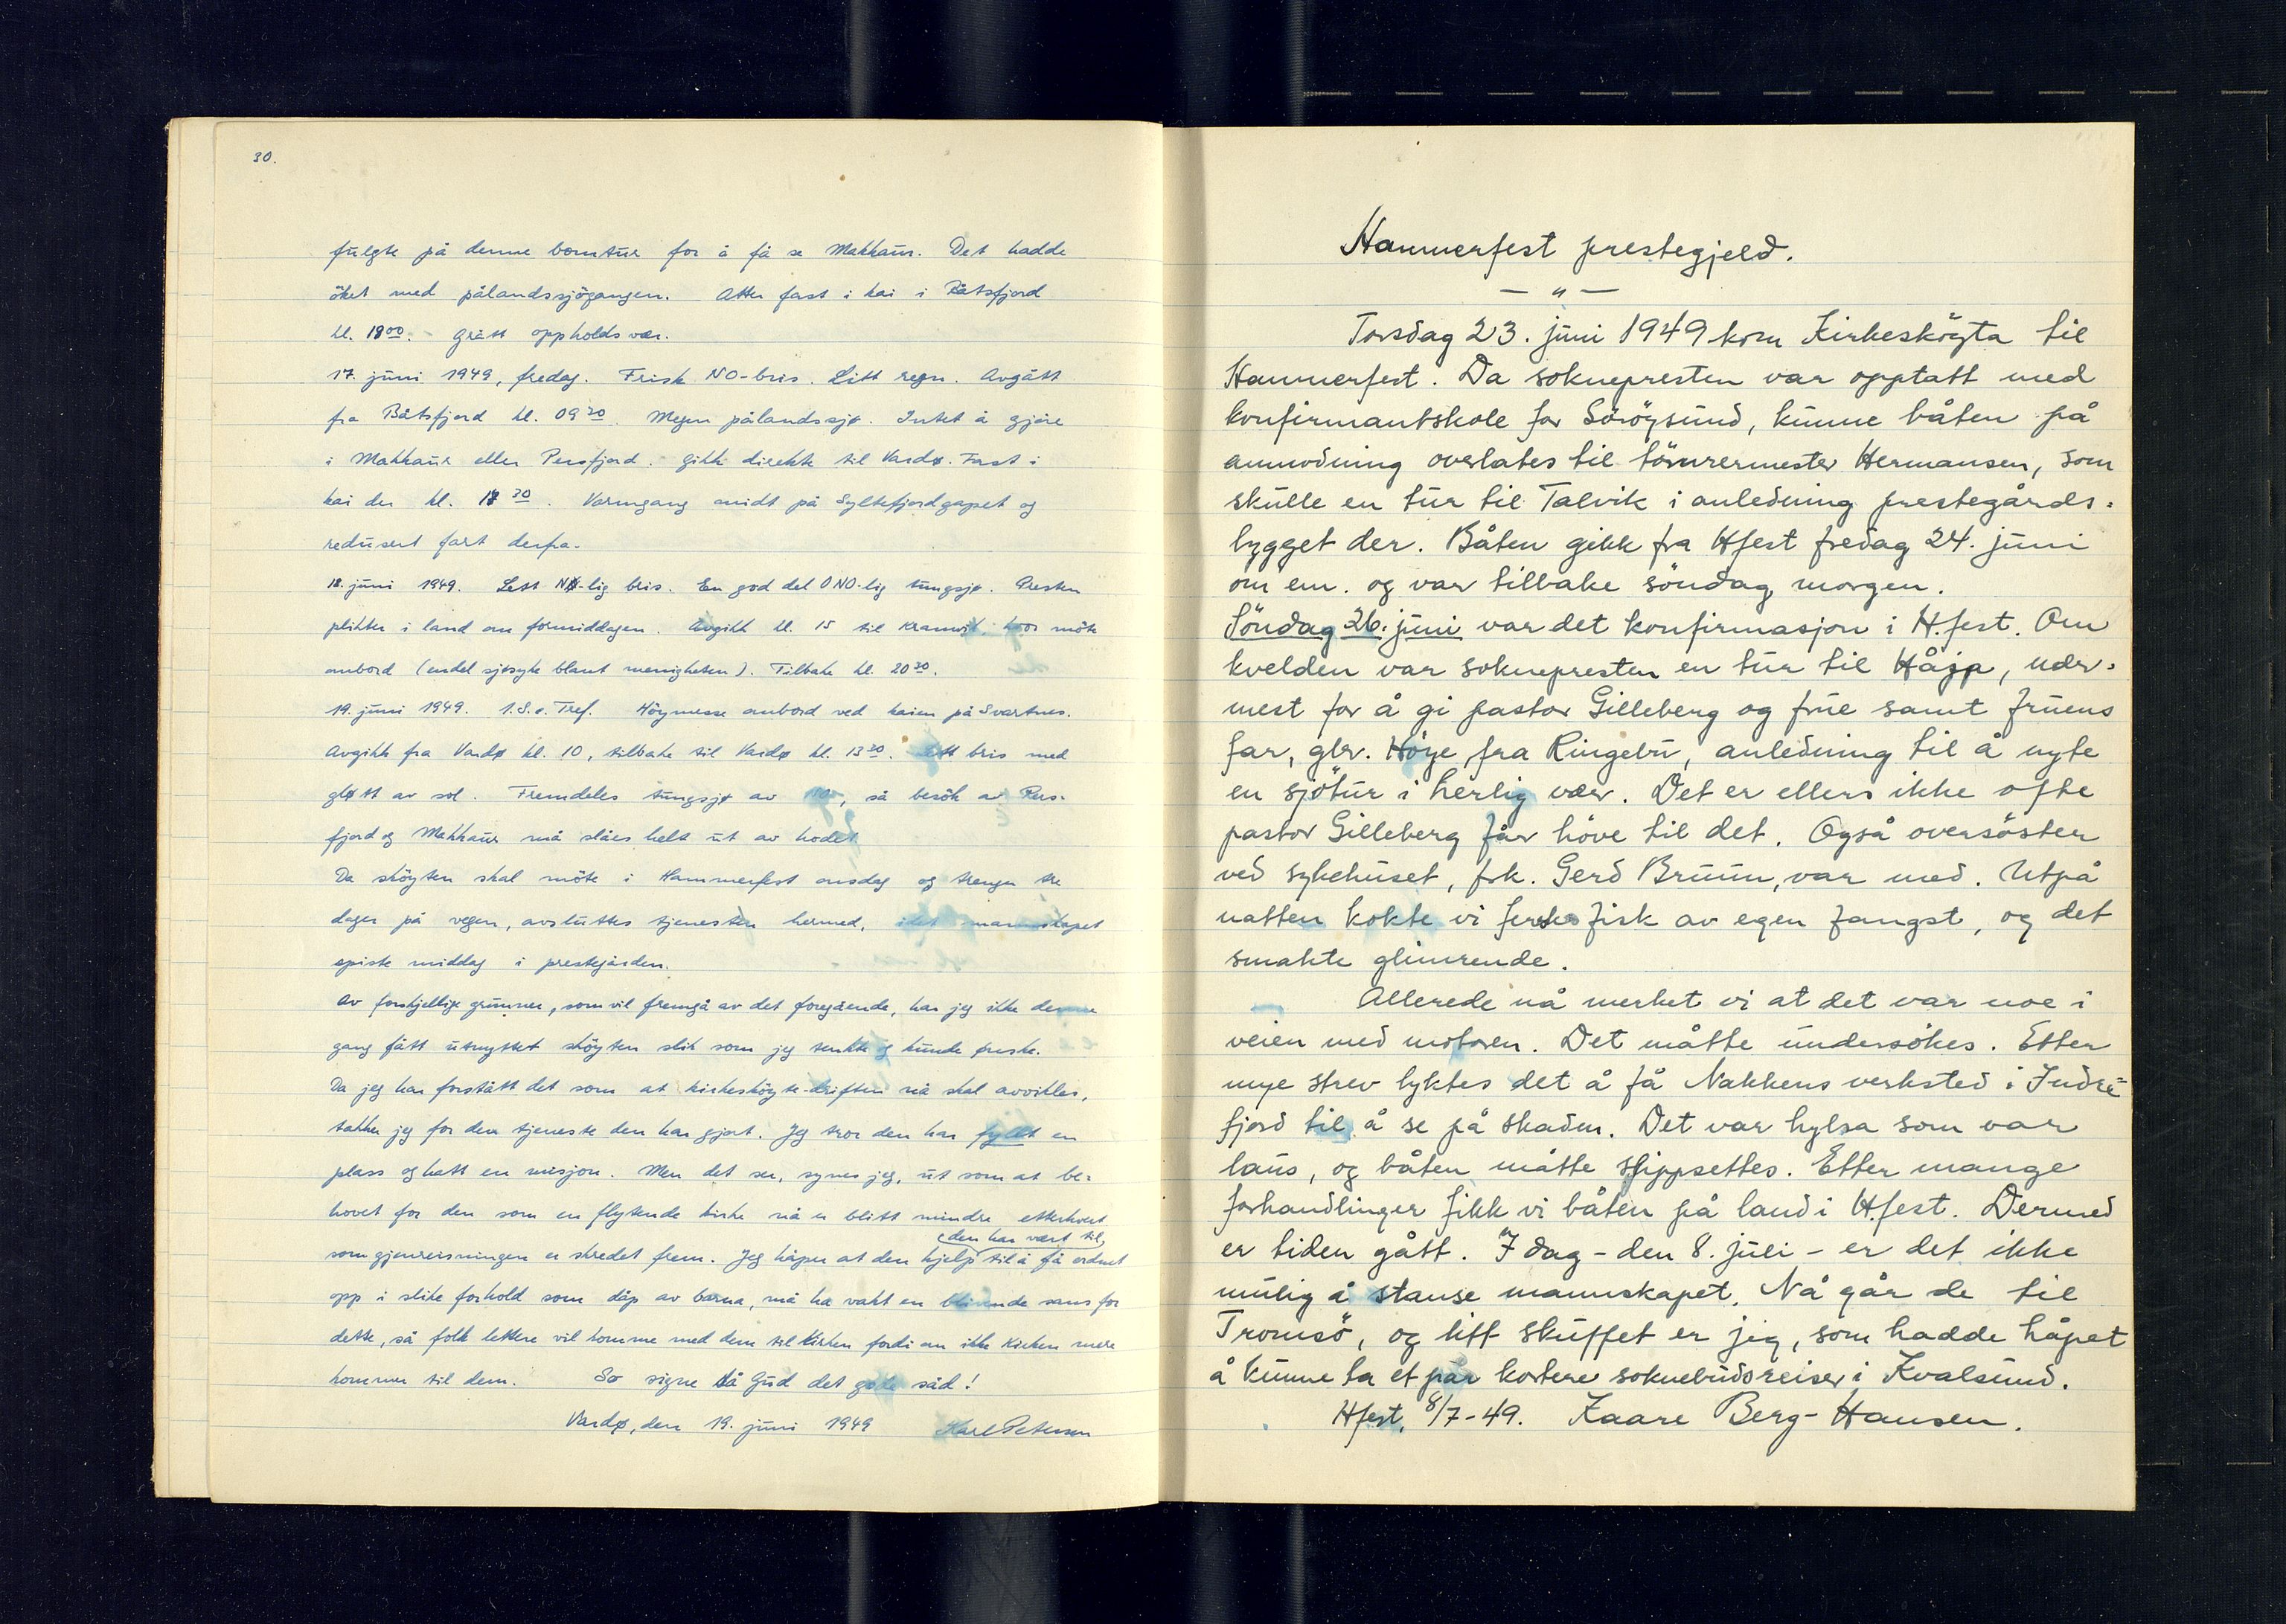 30.
fulgte på denne bomtur for å få se Makkaur. Det hadde
öket med pålandssjögangen. Atter fast i kai i Båtsfjord
kl. 18 00. - Grått oppholdsvær.
17. juni 1949, fredag. Frisk NO-bris. Litt regn. Avgått
fra Båtsfjord kl. 09 20. Megen pålandssjø. Intet å gjöre
i Makkaur eller Persfjord. Gikk direkte til Vardø. Fast i
kai der kl. 18 30. Varmgang midt på Syltefjordgapet og
redusert fart derfra.
18. juni 1949. Lett NØ-lig bris. En god del ONO-lig tungsjø. Presten
plikter i land om formiddagen. Avgikk kl. 15 til Kramvik, hvor möte
ombord (endel sjøsyke blant menigheten). Tilbake kl. 20 30.
19. juni 1949. 1. S. e. Tref. Höymesse ombord ved kaien på Svartnes.
Avgikk fra Vardø kl. 10, tilbake til Vardø kl. 13 30. Lett bris med
gløtt av sol. Fremdeles tungsjø av NO, så besök av Pers-
fjord og Makkaur må slåes helt ut av hodet.
Da sköyten skal möte i Hammerfest onsdag og trenger tre
dager på vegen, avsluttes tjenesten hermed, idet mannskapet
spiste middag i prestegården.
Av forskjellige grunner, som vil fremgå av det foregående, har jeg ikke denne
gang fått utnyttet sköyten slik som jeg tenkte og kunde ønske.
Da jeg har forstått det som at kirkesköyte-driften nå skal avvikles,
takker jeg for den tjeneste den har gjort. Jeg tror den har fyllt en
plass og hatt en misjon. Men det ser, synes jeg, ut som at be-
hovet for den som en flytende kirke nå er blitt mindre etterhvert
den har vært til,
som gjenreisningen er skredet frem. Jeg håper at den hjelp til å få ordnet
opp i slike forhold som dåp av barna, må ha vakt en blivende sans for
dette, så folk lettere vil komme med dem til kirken fordi om ikke kirken mere
kommer til dem. So signe då Gud det gode såd!
Vardø, den 19. juni 1949 Karl Petersen
Hammerfest prestegjeld.
— " —
Torsdag 23. juni 1949 kom Kirkesköyta til
Hammerfest. Da soknepresten var opptatt med
konfirmantskole for Söröysund, kunne båten på
anmodning overlates til tömrermester Hermansen, som
skulle en tur til Talvik i anledning prestegårds-
bygget der. Båten gikk fra Hfest fredag 24. juni
om em. og var tilbake söndag morgen.
Söndag 26. juni var det konfirmasjon i H.fest. Om
kvelden var soknepresten en tur til Håja, nær-
mest for å gi pastor Gilleberg og frue samt fruens
far, gbr. Höye fra Ringebu, anledning til å nyte
en sjötur i herlig vær. Det er ellers ikke ofte
pastor Gilleberg får höve til det. Også oversöster
ved sykehuset, frk. Gerd Bruun, var med. Utpå
natten kokte vi fersk fisk av egen fangst, og det
smakte glimrende.
Allerede nå merket vi at det var noe i
veien med motoren. Det måtte undersökes. Etter
mye strev lyktes det å få Nakkens verksted i Indre-
fjord til å se på skaden. Det var hylsa som var
laus, og båten måtte slippsettes. Etter mange
forhandlinger fikk vi båten på land i H.fest. Dermed
er tiden gått. I dag - den 8. juli - er det ikke
mulig å stanse mannskapet. Nå går de til
Tromsö, og litt skuffet er jeg, som hadde håpet
å kunne ta et par kortere soknebudsreiser i Kvalsund.
Hfest, 8/7-49. Kaare Berg-Hansen.